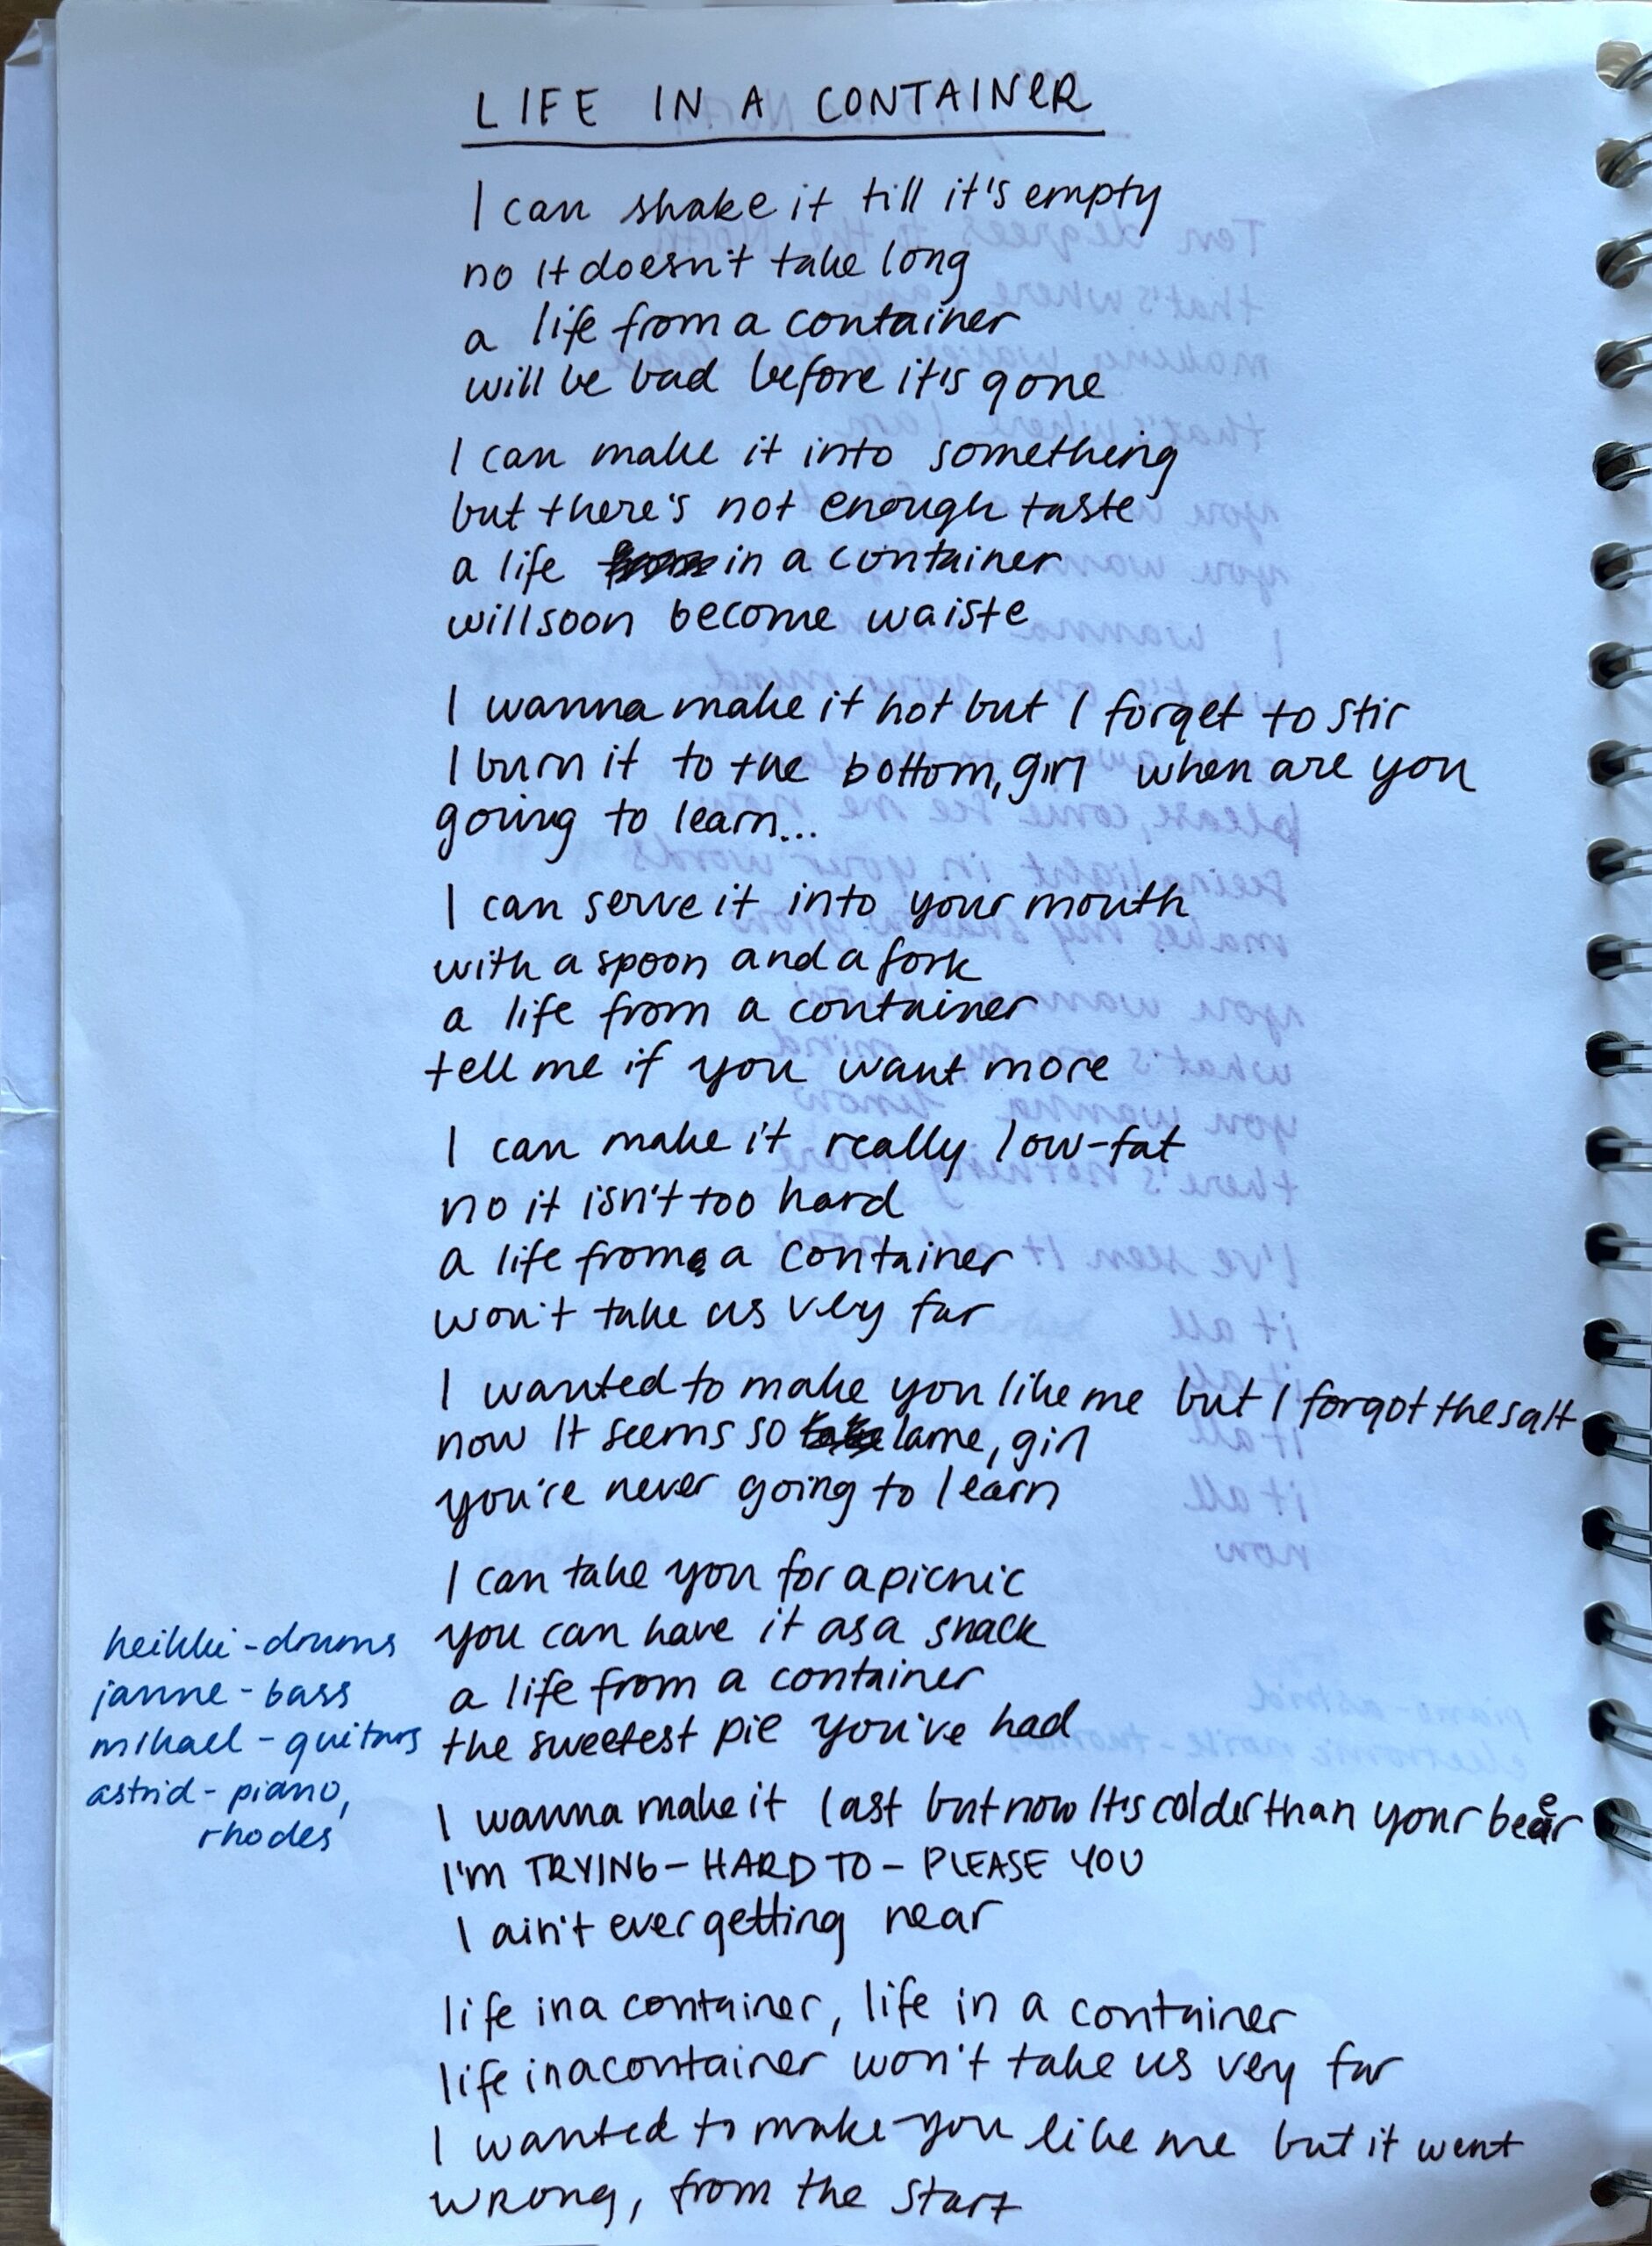 LIFE IN A CONTAINER
I can shake it till it's empty
no it doesn't take long
a life from a container
will be bad before it's gone
I can make it into something
but there's not enough taste
a life in a container
will soon become waiste
I wanna make it hot but I forget to stir
I burn it to the bottom, girl when are you
going to learn...
I can serve it into your mouth
with a spoon and a fork
a life from a container
tell me if you want more
I can make it really low-fat
no it isn't too hard
a life from a container
won't take us very far
I wanted to make you like me but I forgot the salt
now It seems so lame, girl
you're never going to learn
I can take you for a picnic
you can have it as a snack
a life from a container
the sweetest pie you've had
I wanna make it last but now It's colder than your beer
I'm TRYING - HARD TO - PLEASE YOU
I ain't ever getting near
life in a container, life in a container
life in a container won't take us very far
I wanted to make you like me but it went
wrong, from the start
heikki - drums
janne - bass
mikael - guitars
astrid - piano,
rhodes